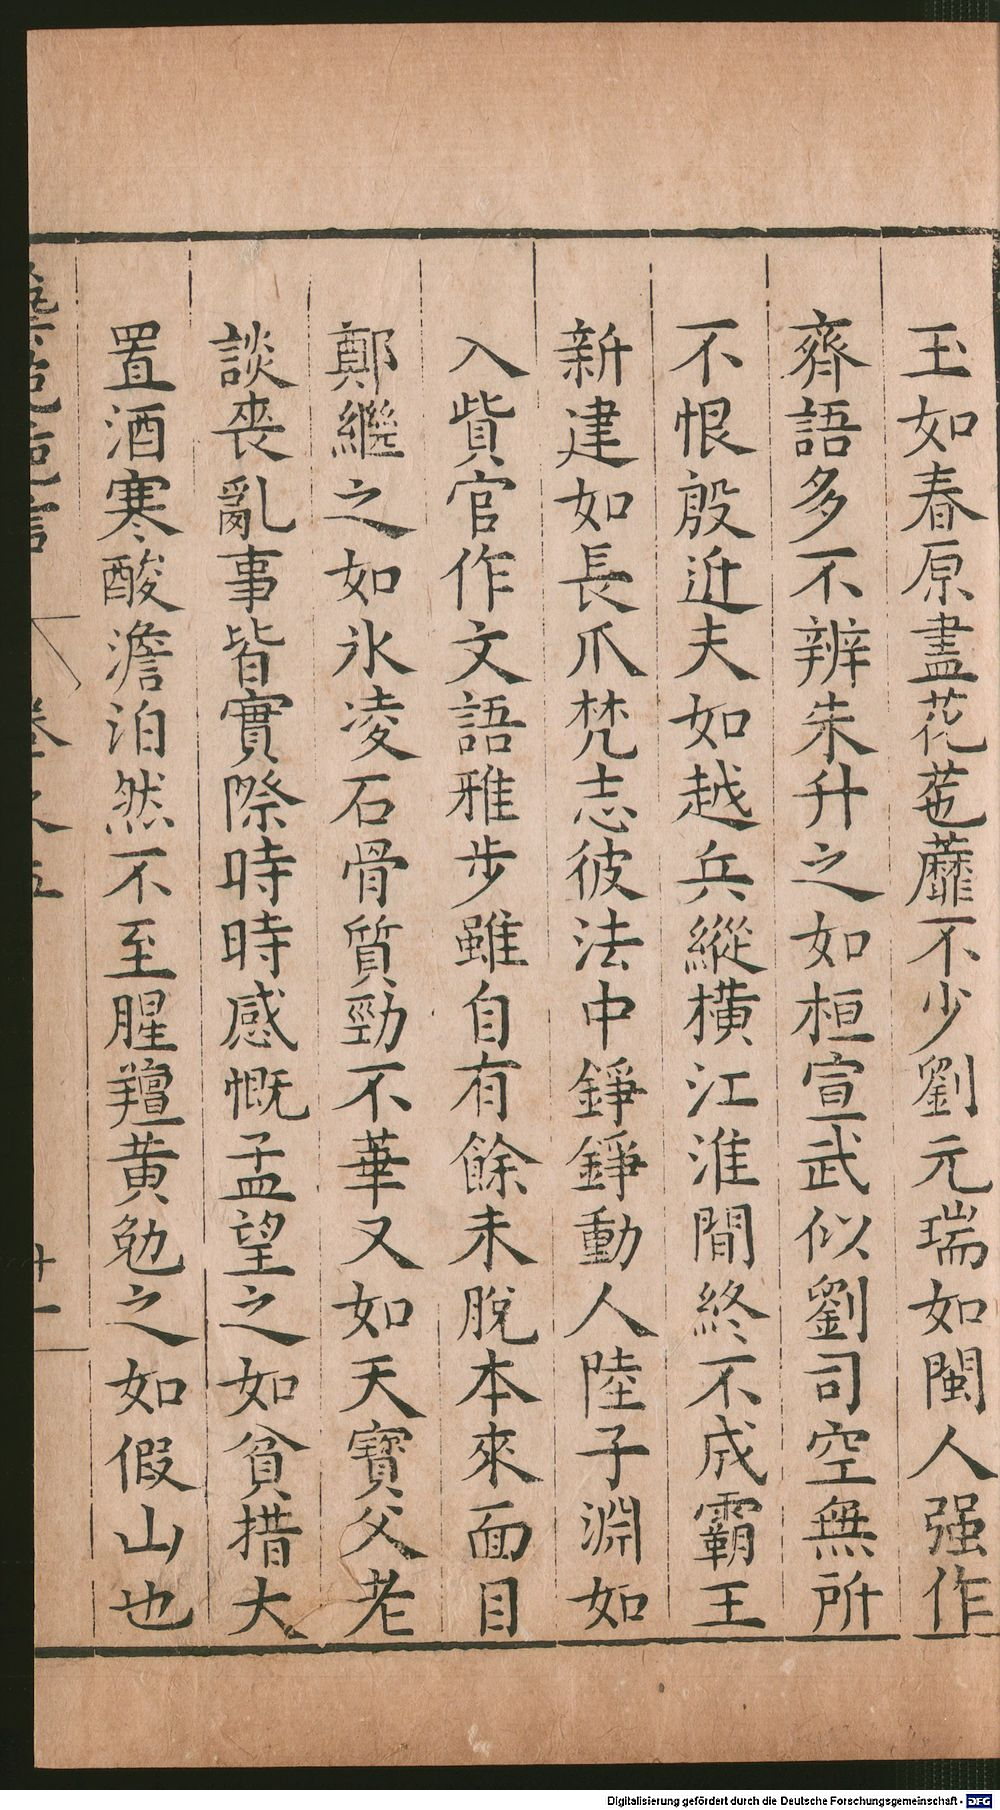 玉如春原盡花苞蘼不少劉元瑞如閩人强作
齊語多不辨朱升之如桓宣武似劉司空無所
不恨殷近夫如越兵縱横江淮間終不成霸王
新建如長爪梵志彼法中錚錚動人陸子淵如
入貲官作文語雅步雖自有餘未脫本來面目
鄭繼之如氷凌石骨質勁不華又如天寶父老
談喪亂事皆實際時時感慨孟望之如貧措大
置酒寒酸澹泊然不至腥羶黄勉之如假山也
卷之五
十一
Digitalisierung gefördert durch die Deutsche Forschungsgemeinschaft - DFG